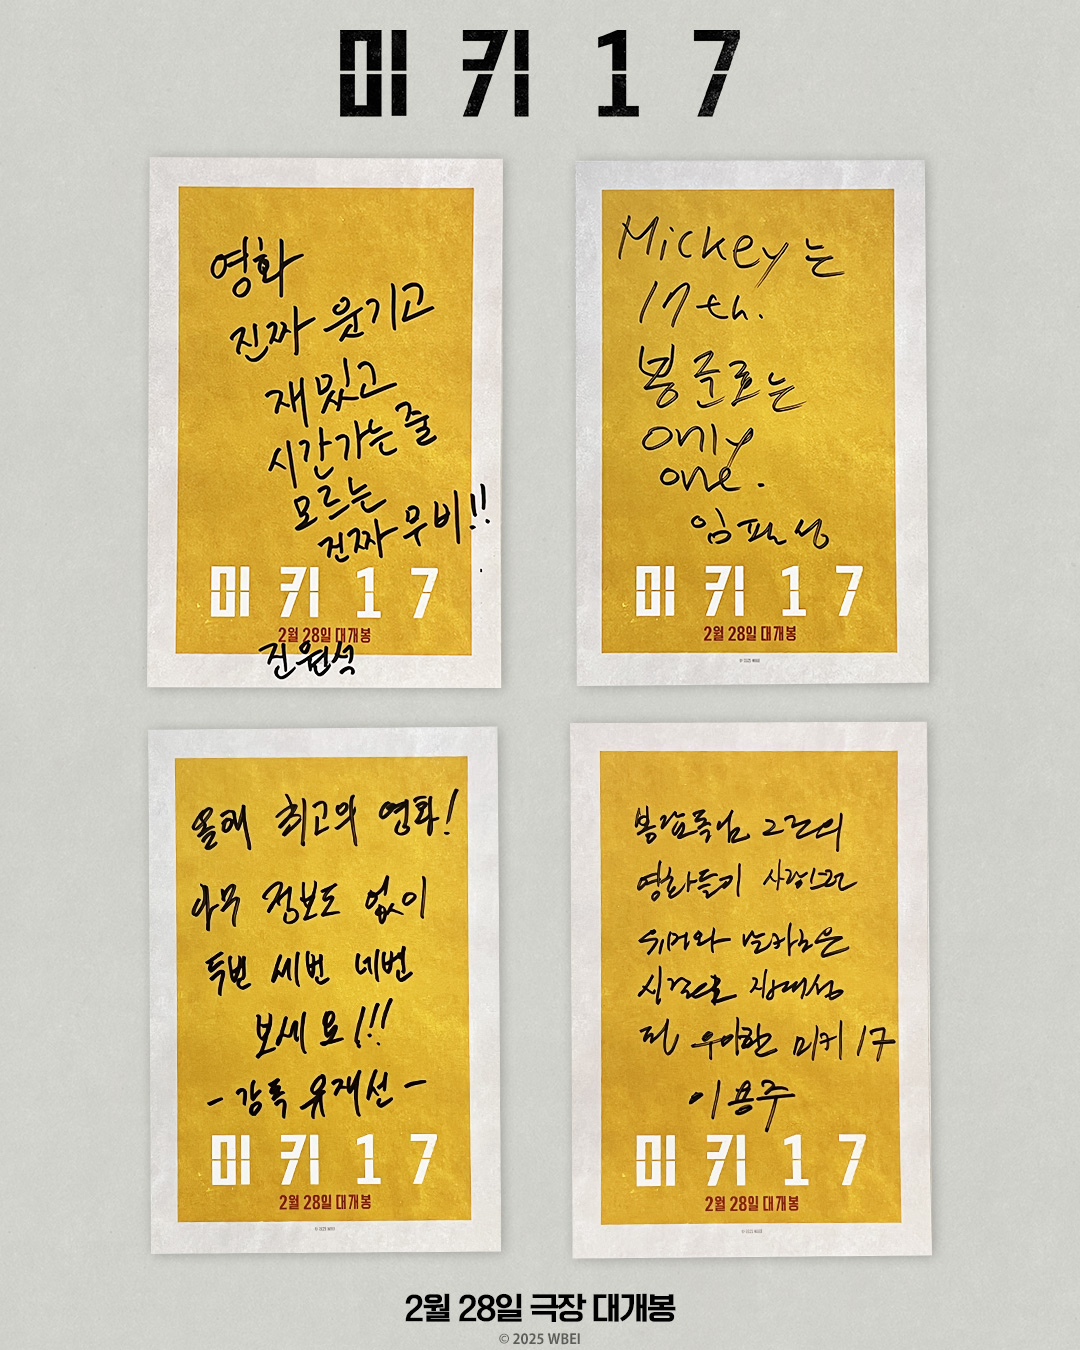 미키17
영화
진짜 웃기고
재밌고
시간가는줄
모르는
진짜 무비!!
미키17
2월 28일 대개봉
진원석
Mickey는
17th.
봉준호는
only
one.
임필성
미키17
2월 28일 대개봉
© 2025 WBEI
올해 최고의 영화!
아무 정보도 없이
두번 세번 네번
보세요!!!
- 감독 유재선 -
미키17
2월 28일 대개봉
© 2025 WBEI
봉감독님 그간의
영화들키
유머와 날카로운
시선으로
된 우아한 미키 17
이용주
미키17
2월 28일 대개봉
© 2025 WBEI
2월 28일 극장 대개봉
© 2025 WBEI